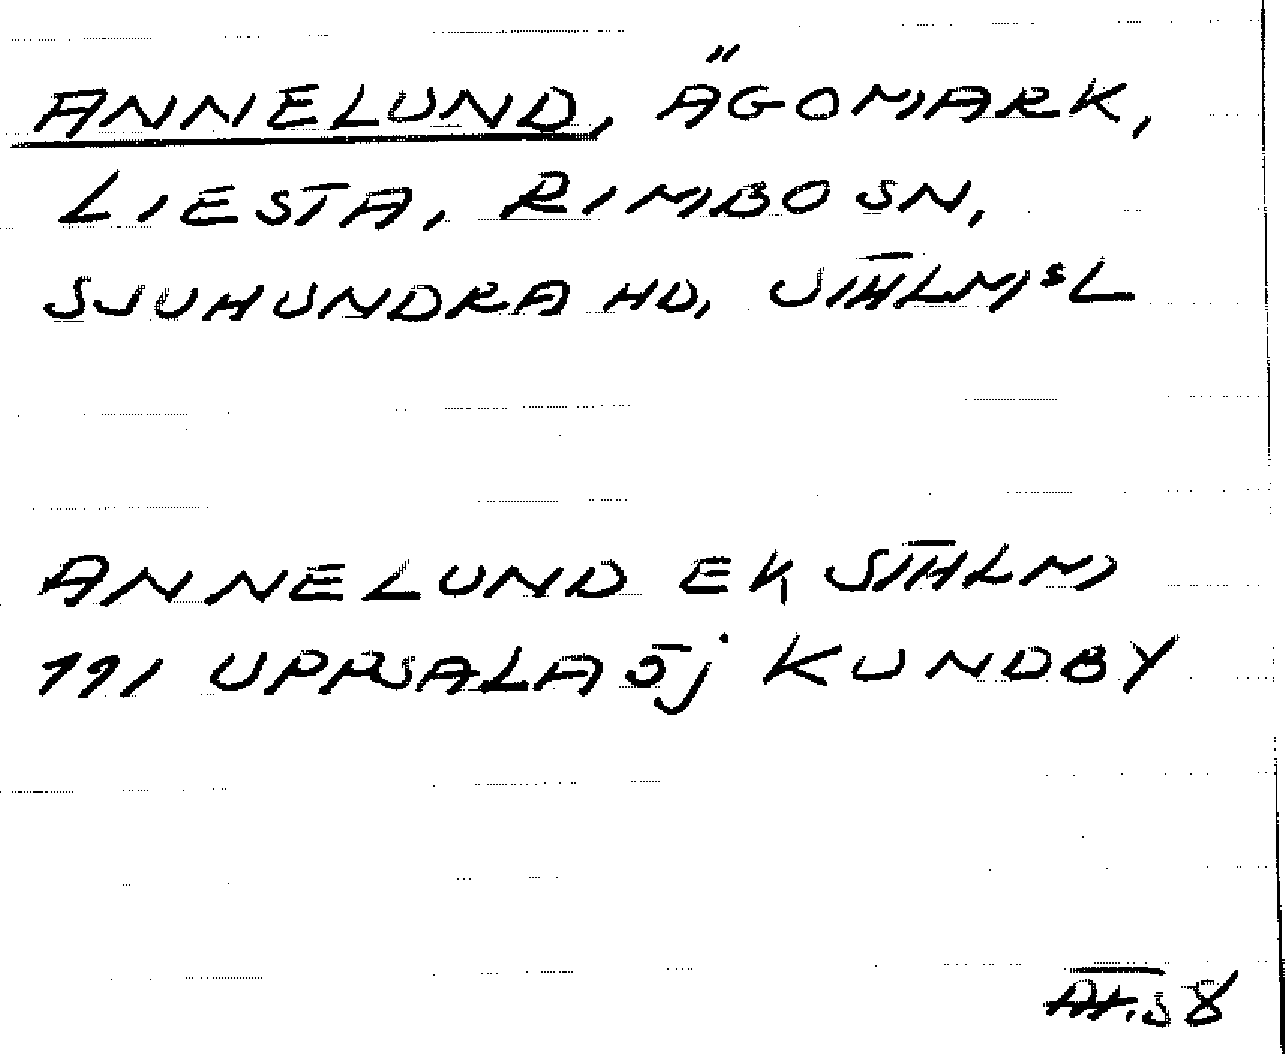 ANNELUND, ÄGOMARK,
LIESTA, RIMBO SN,
SJUHUNDRA HD, STHLMSL
ANNELUND EK STHLM
111 UPPSALA 5j KUNDBY